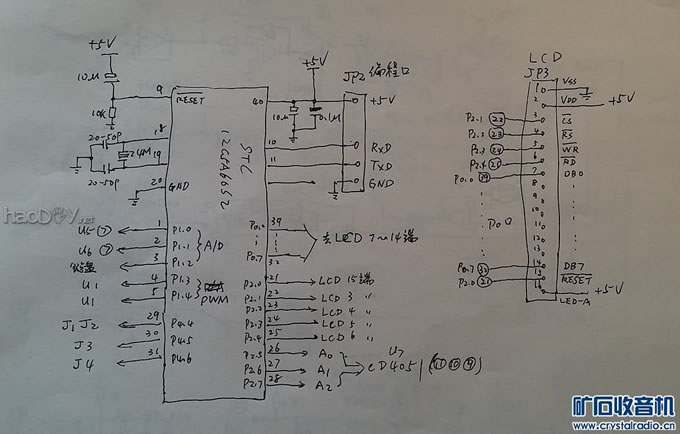 +5V
10μ
9
RESET
10K
20-50P
18
24M
19
20-50P
20
GND
STC
12C5A60S2
40
+5V
10μ
0.1μ
JP2 编程口
+5V
10
RxD
11
TxD
GND
U5⑦
1
P1.0
U6⑦
2
P1.1
A/D
3
P1.2
U1
4
P1.3
U1
5
P1.4
PWM
J1 J2
29
P4.4
J3
30
P4.5
J4
31
P4.6
P0.0
39
P0.7
32
去LCD 7~14端
P2.0
21
LCD 15端
P2.1
22
LCD 3 〃
P2.2
23
LCD 4 〃
P2.3
24
LCD 5 〃
P2.4
25
LCD 6 〃
P2.5
26
A0
P2.6
27
A1
P2.7
28
A2
U7
CD4051(⑪⑩⑨)
LCD
JP3
1
VSS
2
VDD
+5V
P2.1
22
3
CS
P2.2
23
4
RS
P2.3
24
5
WR
P2.4
25
6
RD
P0.0
39
7
DB0
8
9
10
P0口
11
12
13
P0.7
32
14
DB7
P2.0
21
15
RESET
16
LED-A
+5V
haoDIY.net
矿石收音机
www.crystalradio.cn